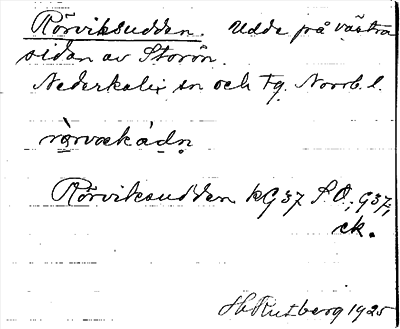 Rörviksudden. Udde på västra
sidan av Storön.
Nederkalix sn och tg. Norrb. l.
Rörviksudden kG 37 S.O.; G37;
ck.
H Rutberg 1925